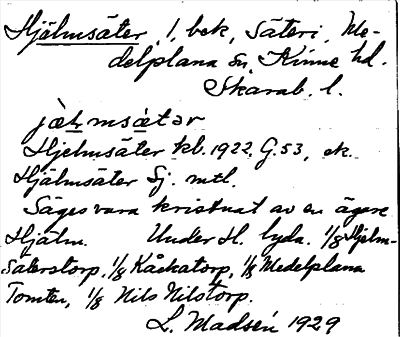 Hjälmsäter, 1, bek, Säteri, Me-
delplana sn, Kinne hd.
Skarab. l.
jæ̀ɫmsætər
Hjelmsäter kb. 1922. G. 53, ek.
Hjälmsäter Sj. mtl.
Säges vara kristnat av en ägare
Hjälm. Under H. lyda. 1/8 Hjelm-
säterstorp, 1/8 Kåckatorp, 1/8 Medelplana
Tomten, 1/8 Nils Nilstorp.
L. Madsén 1929